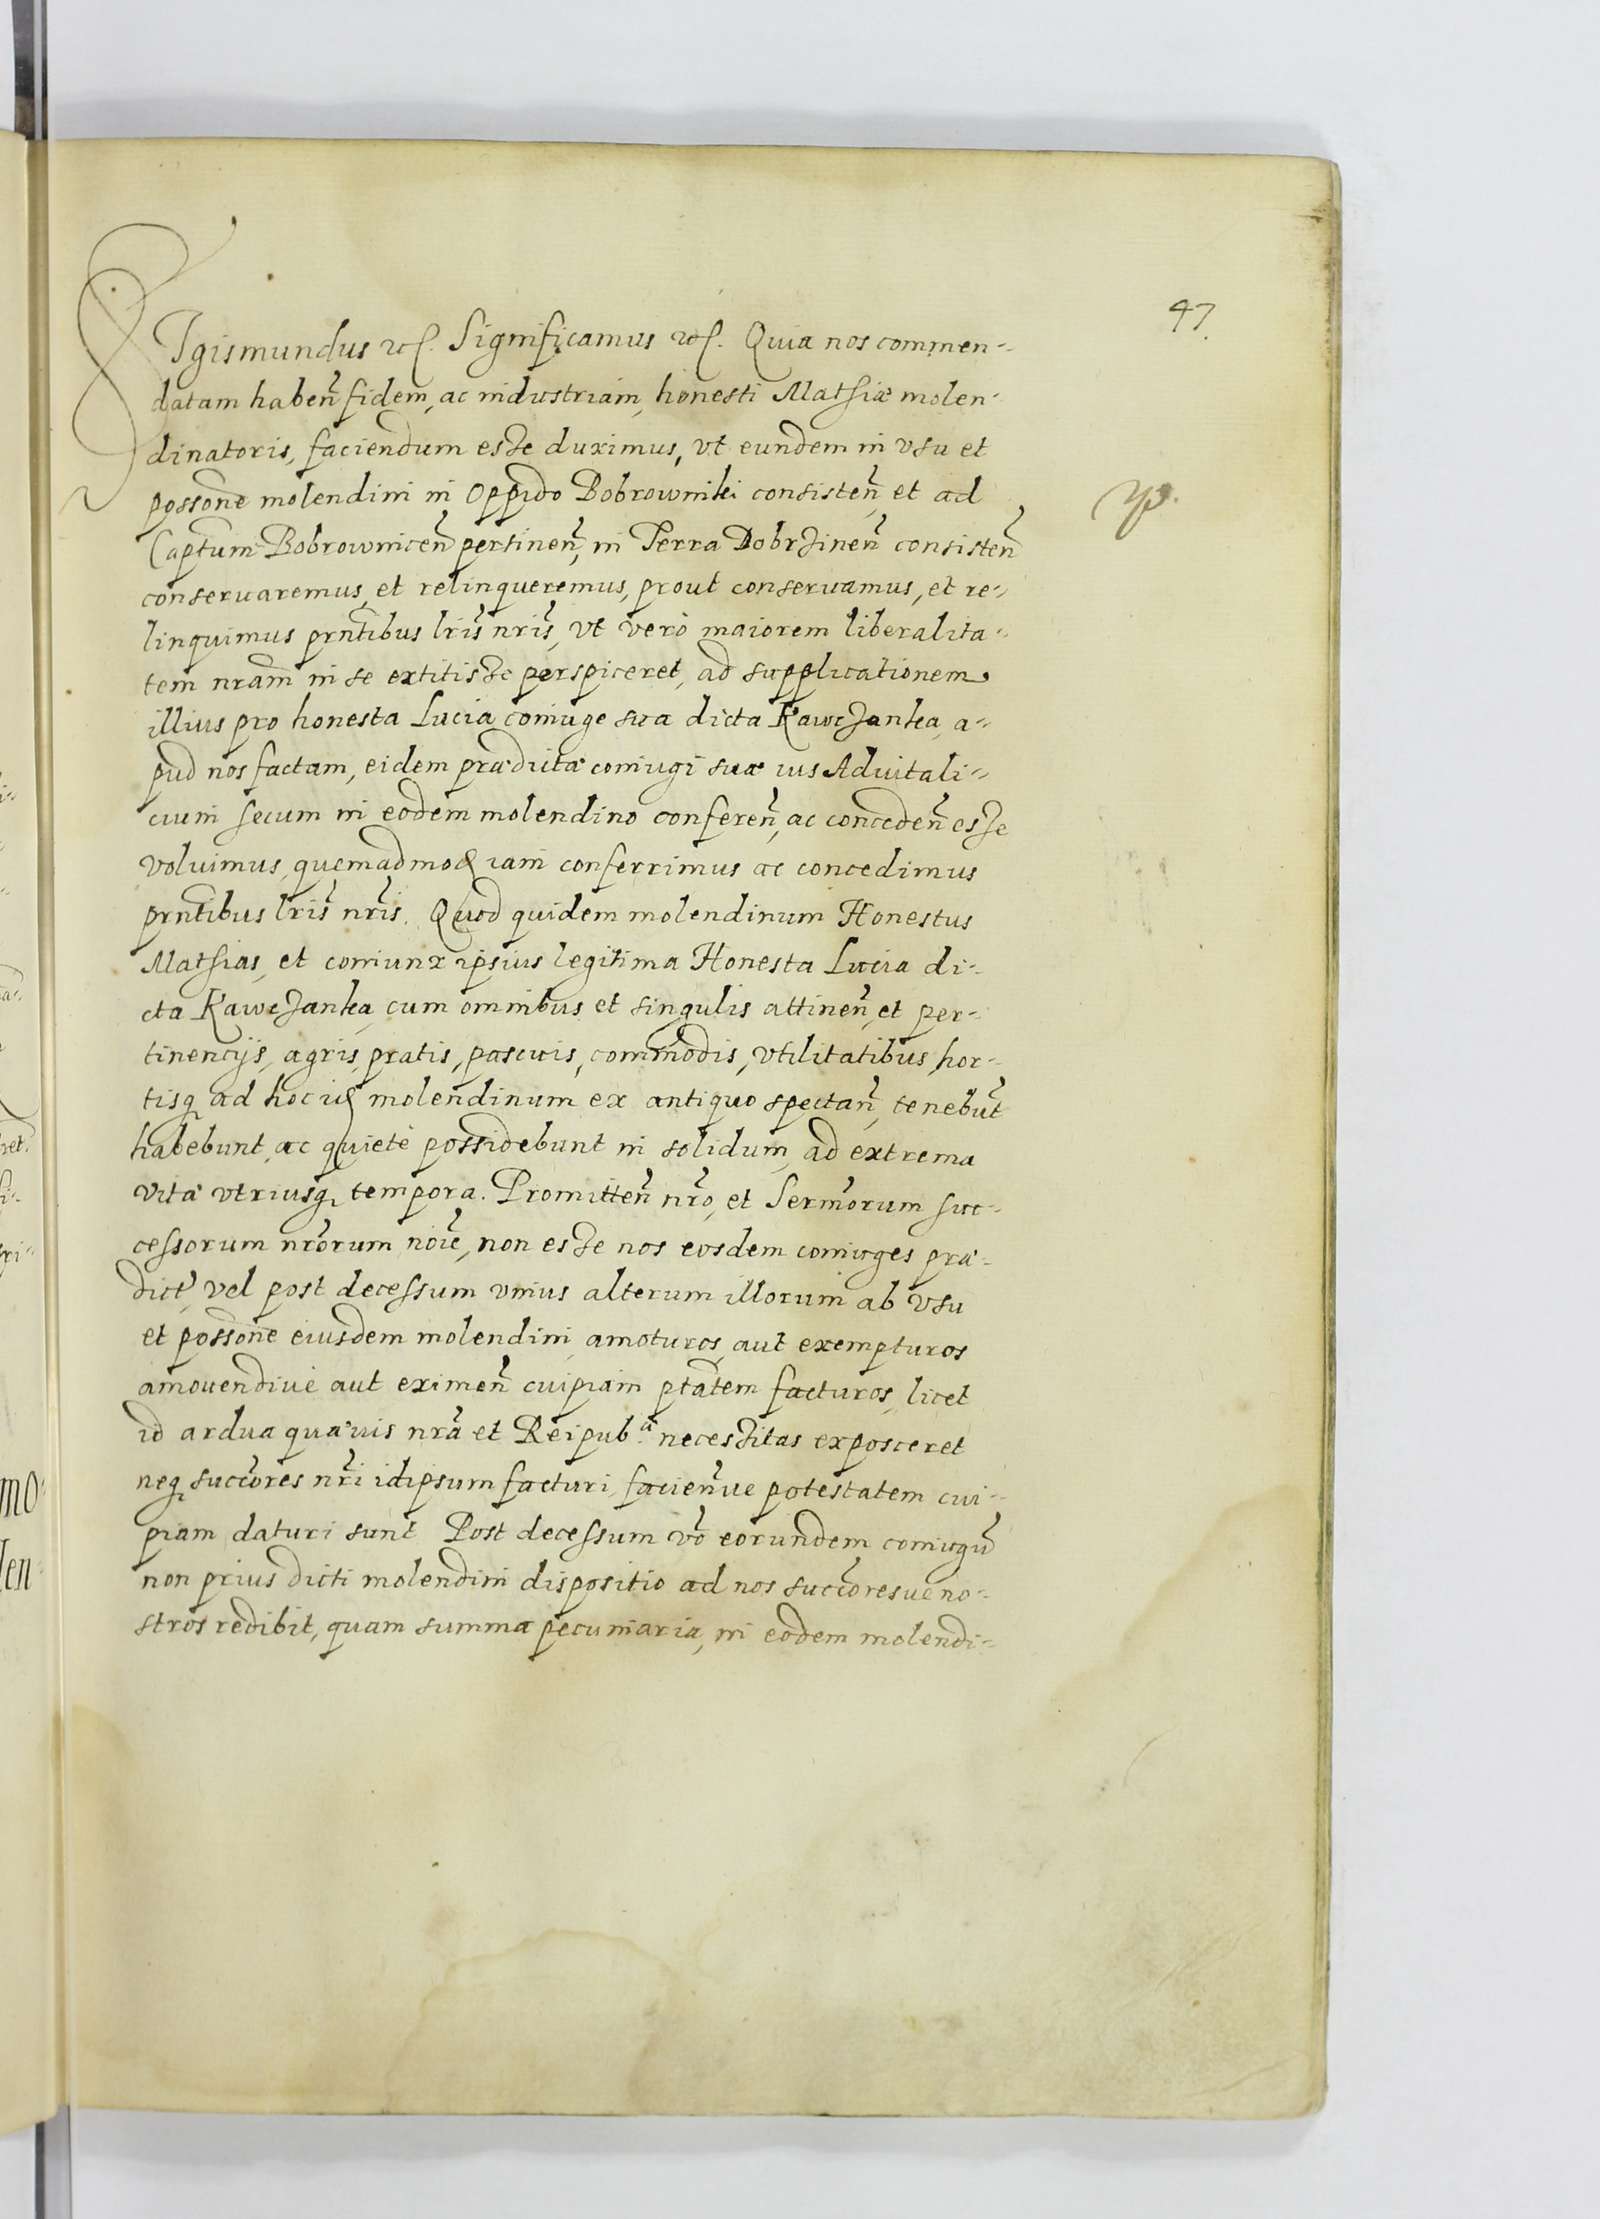 47.
SIgismundus etc. Significamus etc. Quia nos commen-
datam haben̄ fidem, ac industriam, honesti Mathiæ molen-
dinatoris, faciendum esse duximus, vt eundem in vsu et
possone molendini in Oppido Bobrowniki consisten̄, et ad
Captum Bobrownicen̄ pertinen̄, in Terra Dobrzinen̄ consisten̄
conseruaremus, et relinqueremus, prout conseruamus, et re-
linquimus prntibus lris nris, vt vero maiorem liberalita-
tem nram in se extitisse perspiceret, ad supplicationem
illius pro honesta Lucia coniuge sua dicta Kawczanka, a-
pud nos factam, eidem prædictæ coniugi suæ ius Aduitali-
cium secum in eodem molendino conferen̄, ac conceden̄ esse
voluimus, quemadmod iam conferrimus ac concedimus
prntibus lris nris. Quod quidem molendinum Honestus
Mathias, et coniunx ipsius legitima Honesta Lucia di-
cta Kawczanka, cum omnibus et singulis attinen̄, et per-
tinencijs, agris, pratis, pascuis, commodis, vtilitatibus, hor-
tisq ad hoc id molendinum ex antiquo spectan̄, tenebūt
habebunt, ac quietè possidebunt in solidum, ad extrema
vitæ vtriusq tempora. Promitten̄ nro, et Sermorum suc-
cessorum nrorum noie, non esse nos eosdem coniuges præ-
dict, vel post decessum vnius alterum illorum ab vsu
et possone eiusdem molendini, amoturos, aut exempturos
amouendiue aut eximen̄ cuipiam ptatem facturos, licet
id ardua quæuis nra et Reipub.cæ necessitas exposceret
neq succores nri idipsum facturi, facien̄ue potestatem cui-
piam daturi sunt Post decessum vo eorundem coniugū
non prius dicti molendini dispositio ad nos succoresue no-
stros redibit, quam summa pecuniaria, in eodem molendi-